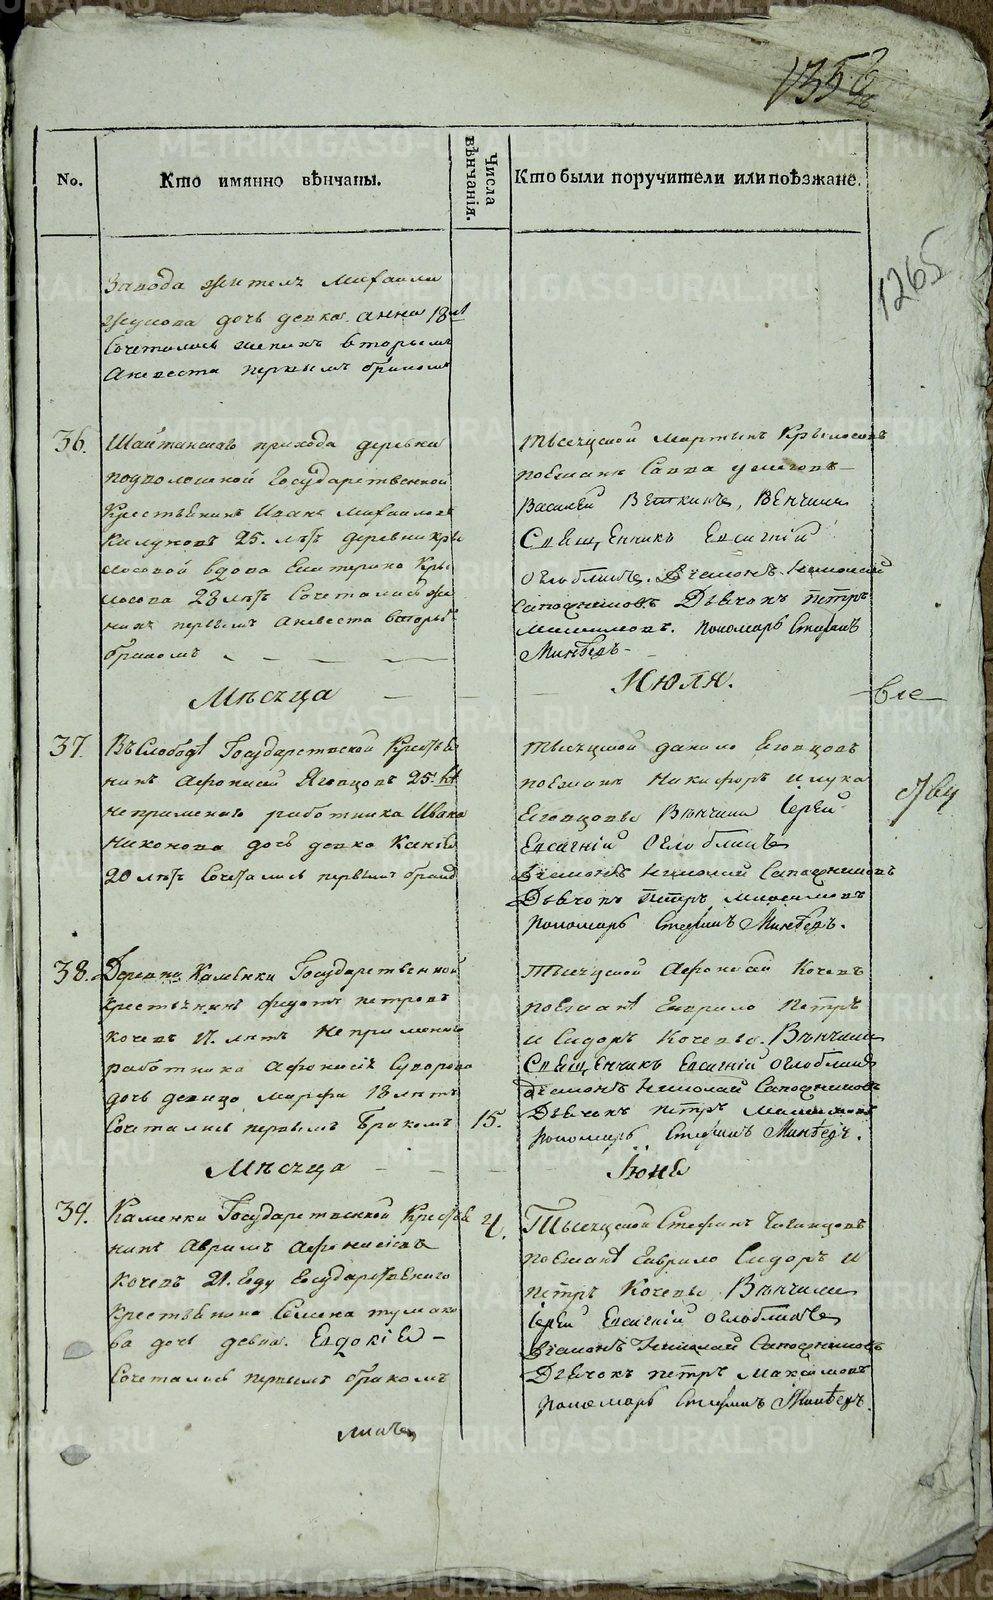 1356
1265
No.
Кто имянно вѣнчаны.
Числа вѣнчанія.
Кто были поручители или поѣзжане.
завода жител Михаила
дочь девка анна 18
сочетались жених вторым
а невеста первым браком
36.
прихода деревни
подволошной Государственной
Крестьянинъ Иванъ Михаиловъ
25. лѣтъ деревни Кры
лосовой вдова Екатерина Кры
лосова 28 лѣтъ Сочетались же
них первымъ а невеста вторы
браком
тысецкой Мартынъ Крылосовъ
поезжана Савва
Василей Вяткинъ, Венчали
Священникъ Евсигній
Оглоблинъ. Діаконъ Николай
Сапожниковъ Дьячокъ петръ
Максимовъ. пономарь Стефанъ
Мѣсяца
Июля.
37.
Въ Слободѣ Государственной Крестья
нинъ Афонасий Яговцовъ 25.
непременного работника Ивана
Никонова дочь девка Ксенья
20 лѣтъ Сочетались первымъ брако
тысецкой данило Еговцовъ
поезжана Никифоръ и лука
Еговцовы Вѣнчали Іерей
Евсигній Оглоблинъ
Діаконъ Николай Сапожниковъ
Дьячокъ Петръ Максимовъ
пономарь Стефанъ
38.
Деревни Каменки Государственной
крестьянинъ федотъ петровъ
кочевъ 17. летъ Непременного
работника Афонасія Суворова
дочь девица марфа 18 летъ
Сочетались первымъ Бракомъ
15.
Тысецкой Афонасей Кочевъ
поезжанѣ Гаврило Петръ
и Сидоръ Кочевы. Вѣнчали
Священникъ Евсигній Оглоблинъ
Діаконъ Николай Сапожниковъ
Дьячокъ петръ Максимовъ
пономарь Стефанъ
Мѣсяца
39.
Каменки Государственной Крестья
нинъ Аврамъ Афонасіевъ
кочевъ 21. году Государственного
крестьянина Семена тумако
ва дочь девка. Евдокія
Сочетались первымъ бракомъ
4.
Тысецкой Стефанъ
поезжанѣ Гаврило Сидоръ и
петръ Кочевы Вѣнчали
Іерей Евсигній Оглоблинъ
Діаконъ Николай Сапожниковъ
Дьячокъ петръ Максимовъ
пономарь Стефанъ
METRIKI.GASO-URAL.RU